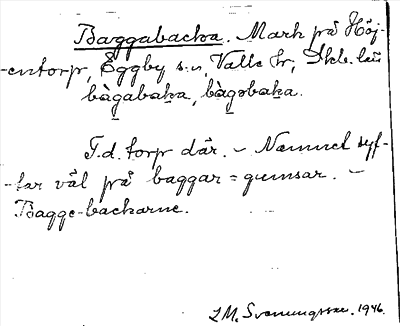 Baggabacka. Mark på Höj-
-entorp, Eggby s:n, Valle hr, Skb. län
bàgabaka, bàgobaka.
F.d. torp där. – Namnet syf-
-tar väl på baggar = gumsar. –
Bagge-backarne.
L M. Svenungsson. 1946.